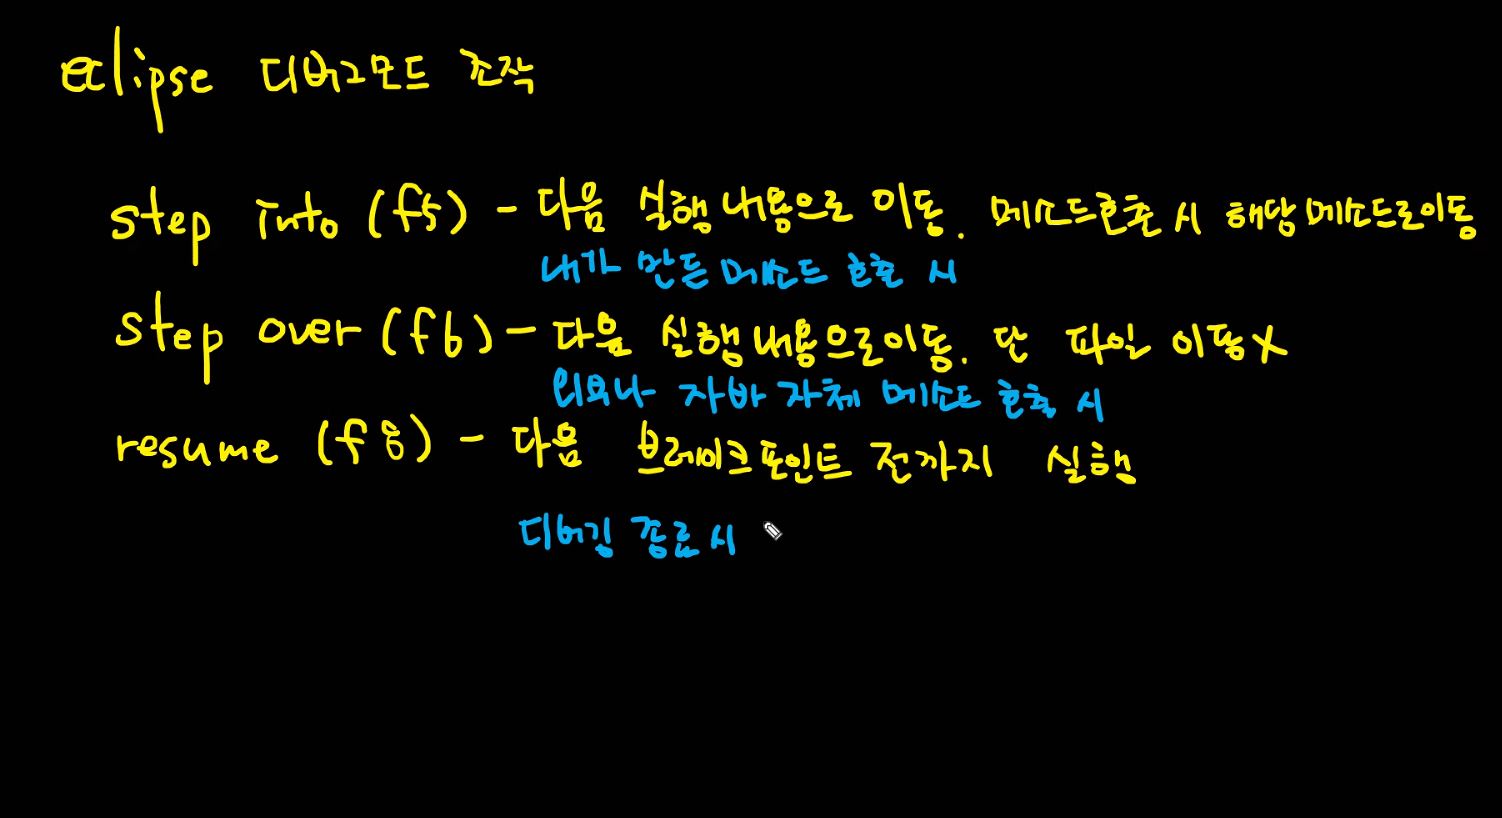 eclipse 디버그모드 조작
step into (f5) - 다음 실행내용으로 이동. 메소드호출 시 해당메소드로이동
내가 만든 메소드 호출 시
step over (f6) - 다음 실행내용으로이동. 단 파일 이동X
외부나 자바 자체 메소드 호출 시
resume (f8) - 다음 브레이크포인트 전까지 실행
디버깅 종료시